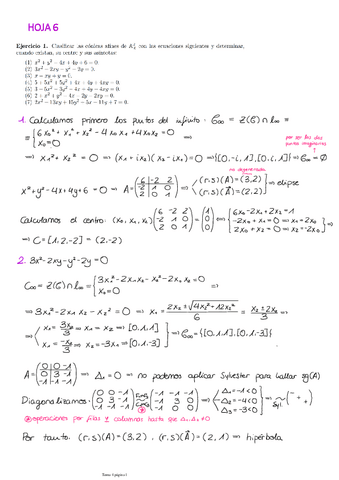 HOJA 6
Ejercicio 1. Clasificar las cónicas afines de con las ecuaciones siguientes y determinar,
cuando existan, su centro y sus asíntotas:
(1) x² + y² − 4x + 4y + 6 = 0.
(2) 3x² − 2xy − y² − 2y = 0.
(3) x − xy + y = 0.
1. Calculamos primero los puntos del infinito : C∞ = Z(G) ∩ l∞ =
= { 6x₀² + x₁² + x₂² − 4x₀x₁ + 4x₀x₂ = 0
x₀ = 0
por ser los dos
puntos imaginarios
⟹ x₁² + x₂² = 0 ⟹ (x₁ + ix₂)(x₁ − ix₂) = 0 ⟹ {[0,-i,1],[0,i,1]} ⟹ C∞ = ∅
no degenerada
x² + y² − 4x + 4y + 6 = 0 ⟹ A = (6 −2 2 / −2 1 0 / 2 0 1) ⟹ { (r,s)(A) = (3,2) (r,s)(A) = (2,2) ⟹ elipse
Calculamos el centro: (x₀, x₁, x₂) (6 −2 2 / −2 1 0 / 2 0 1) = (1 / 0 / 0) ⟺ { 6x₀ − 2x₁ + 2x₂ = 1
−2x₀ + x₁ = 0 ⟹ x₁ = 2x₀
2x₀ + x₂ = 0 ⟹ x₂ = −2x₀
⟹ C = [1, 2, −2] = (2, −2)
2. 3x² − 2xy − y² − 2y = 0
C∞ = Z(G) ∩ l∞ = { 3x₁² − 2x₁x₂ − x₂² − 2x₂x₀ = 0
x₀ = 0
⟹ 3x₁² − 2x₁x₂ − x₂² = 0 ⟹ x₁ = (2x₂ ± √(4x₂² + 12x₂²)) / 6 = (x₂ ± 2x₂) / 3
⟹ { x₁ = 3x₂/3 ⟹ x₁ = x₂ ⟹ [0,1,1]
x₁ = −x₂/3 ⟹ x₂ = −3x₁ ⟹ [0,1,−3] ⟹ C∞ = {[0,1,1],[0,1,−3]}
A = (0 0 −1 / 0 3 −1 / −1 −1 −1) ⟹ Δ₁ = 0 ⟹ no podemos aplicar Sylvester para hallar sg(A)
Diagonalizamos: (0 0 −1 / 0 3 −1 / −1 −1 −1) (−1 −1 −1 / −1 3 0 / −1 0 0) ⟹ { Δ₁ = −1 < 0
Δ₂ = −4 < 0
Δ₃ = −3 < 0 ⟹ Syl. ~ (− + +)
operaciones por filas y columnas hasta que Δ₁, Δ₂ ≠ 0
Por tanto, (r,s)(A) = (3,2), (r,s)(A) = (2,1) ⟹ hipérbola